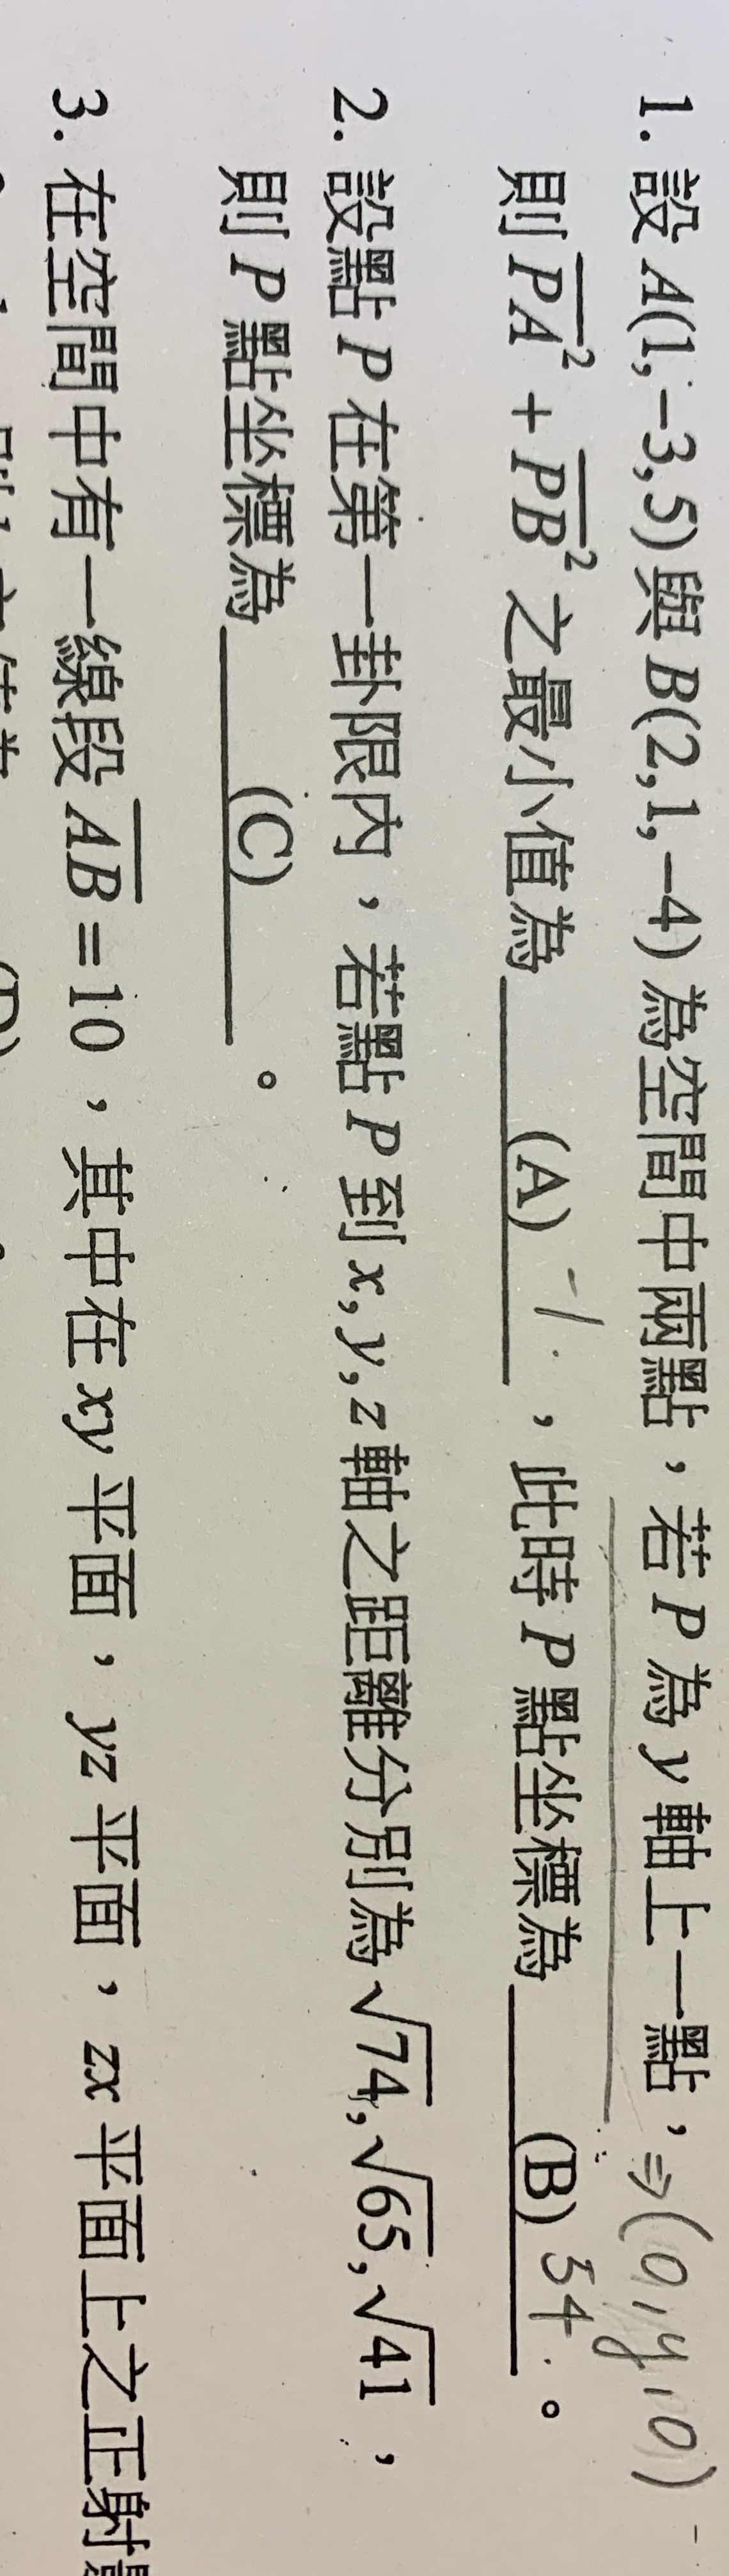 1. 設 A(1,−3,5) 與 B(2,1,−4) 為空間中兩點，若 P 為 y 軸上一點，⇒(0,y,0)
則 PA² + PB² 之最小值為 (A) -1，此時 P 點坐標為 (B) 54。
2. 設點 P 在第一卦限內，若點 P 到 x,y,z 軸之距離分別為 √74,√65,√41，
則 P 點坐標為 (C) 。
3. 在空間中有一線段 AB = 10，其中在 xy 平面，yz 平面，zx 平面上之正射